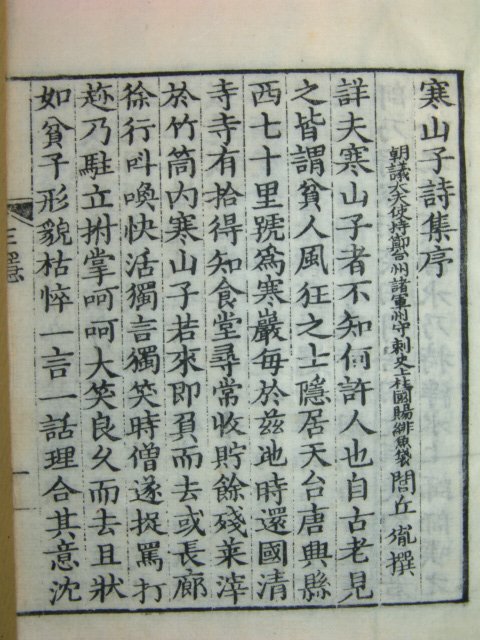 寒山子詩集序
朝議大夫使持節台州諸軍州守刺史上柱國賜緋魚袋 閭丘胤撰
詳夫寒山子者不知何許人也自古老見
之皆謂貧人風狂之士隱居天台唐興縣
西七十里號爲寒巖每於茲地時還國清
寺寺有拾得知食堂尋常收貯餘殘菜滓
於竹筒内寒山子若來即負而去或長廊
徐行叫喚快活獨言獨笑時僧遂捉罵打
趂乃駐立拊掌呵呵大笑良久而去且狀
如貧子形貌枯悴一言一話理合其意沈
三隱